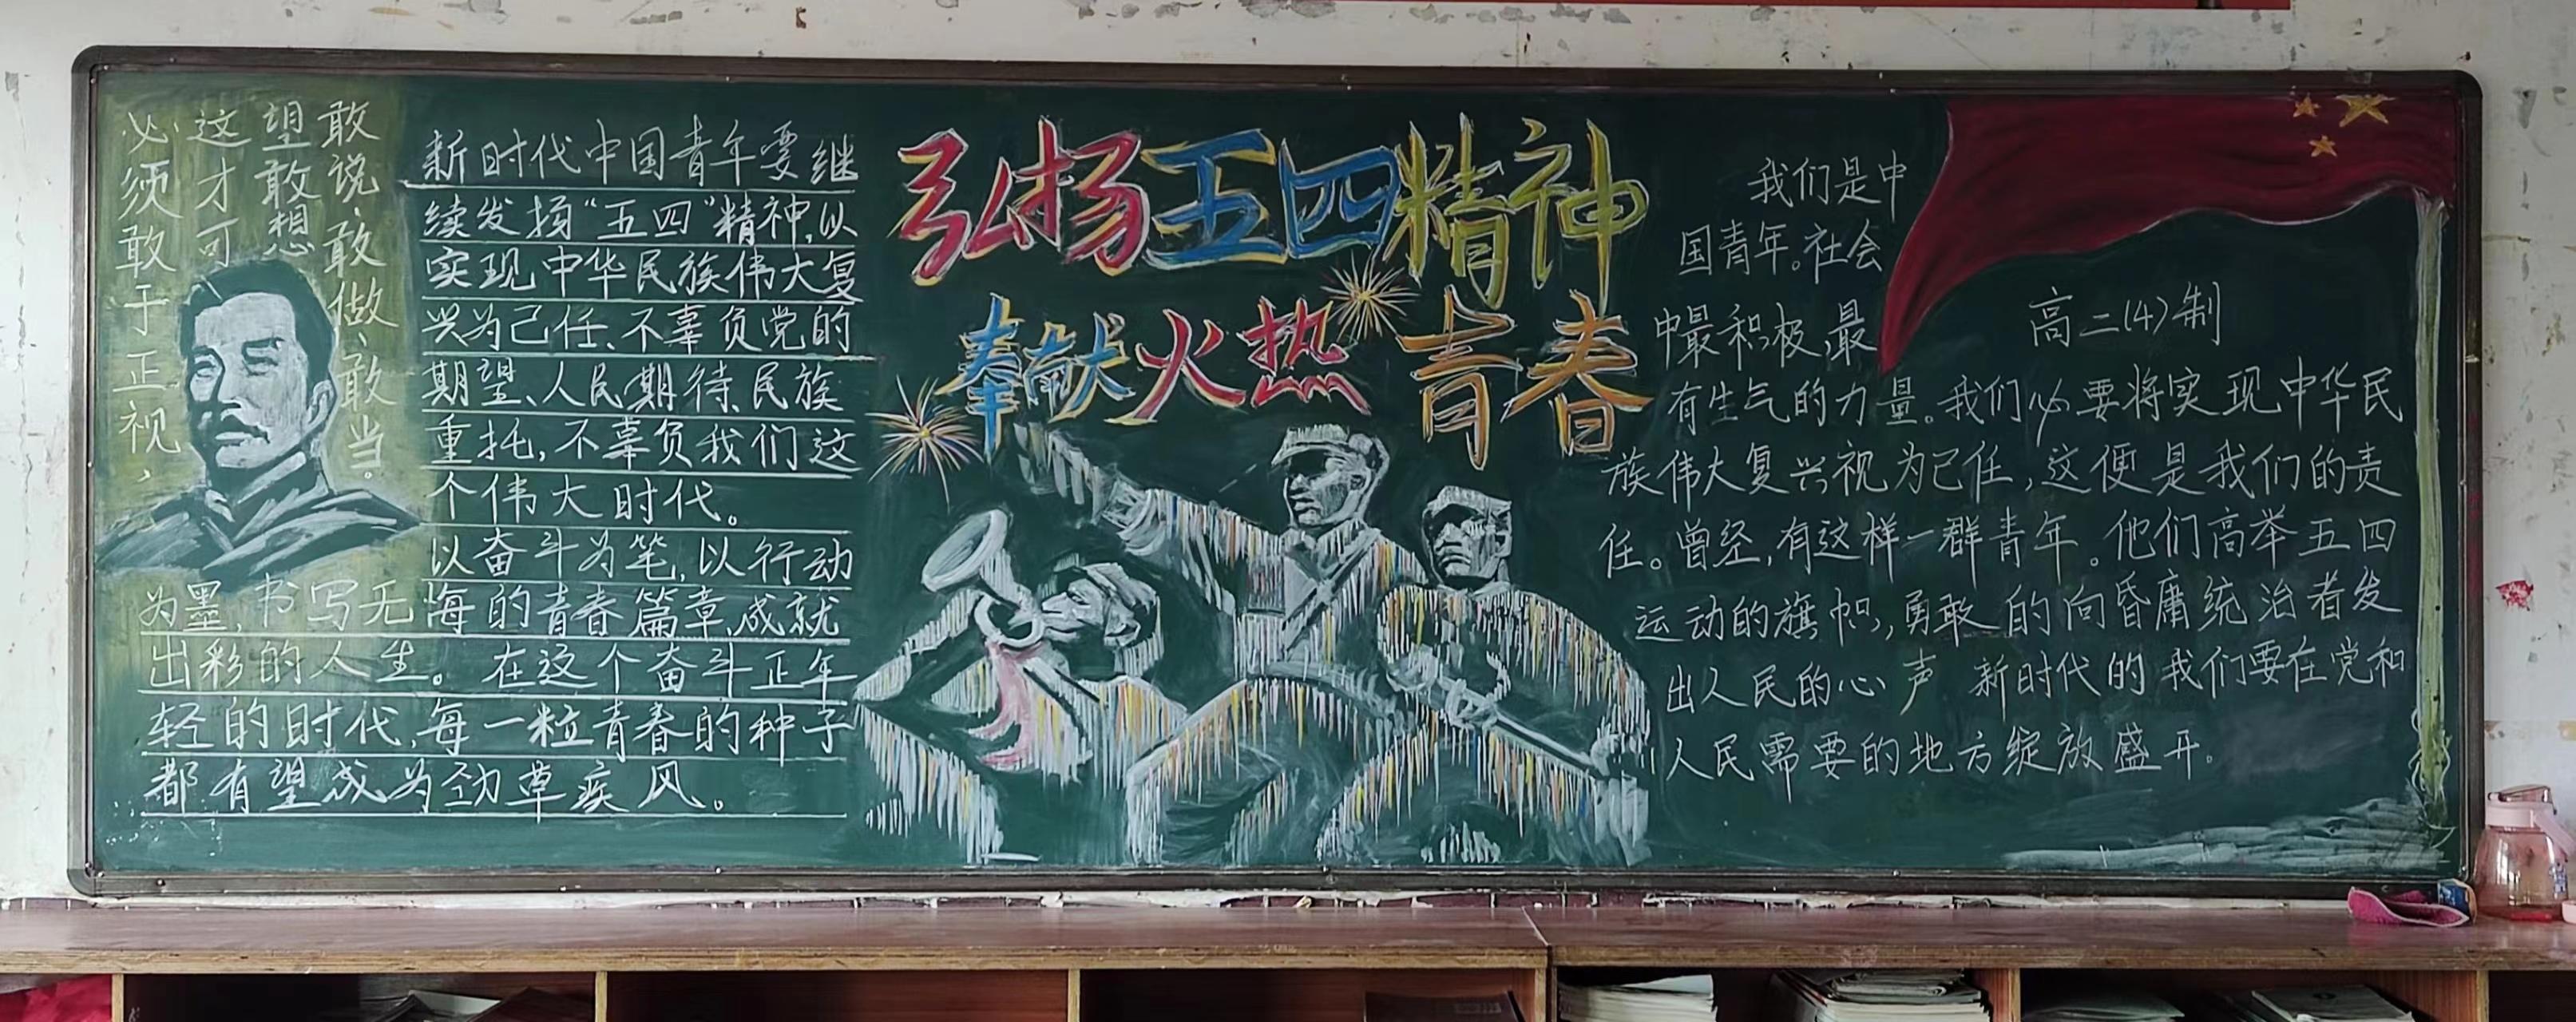 必须敢于正视，
这才可
望敢想
敢说、敢做、敢当。
新时代中国青年要继
续发扬“五四”精神,以
实现中华民族伟大复
兴为己任、不辜负党的
期望、人民期待、民族
重托,不辜负我们这
个伟大时代。
以奋斗为笔,以行动
为墨,书写无悔的青春篇章,成就
出彩的人生。在这个奋斗正年
轻的时代,每一粒青春的种子
都有望成为劲草疾风。
弘扬五四精神
奉献火热青春
我们是中
国青年。社会
中最积极,最
有生气的力量。我们必要将实现中华民
族伟大复兴视为己任,这便是我们的责
任。曾经,有这样一群青年。他们高举五四
运动的旗帜,勇敢的向昏庸统治者发
出人民的心声 新时代的我们要在党和
人民需要的地方绽放盛开。
高二(4)制